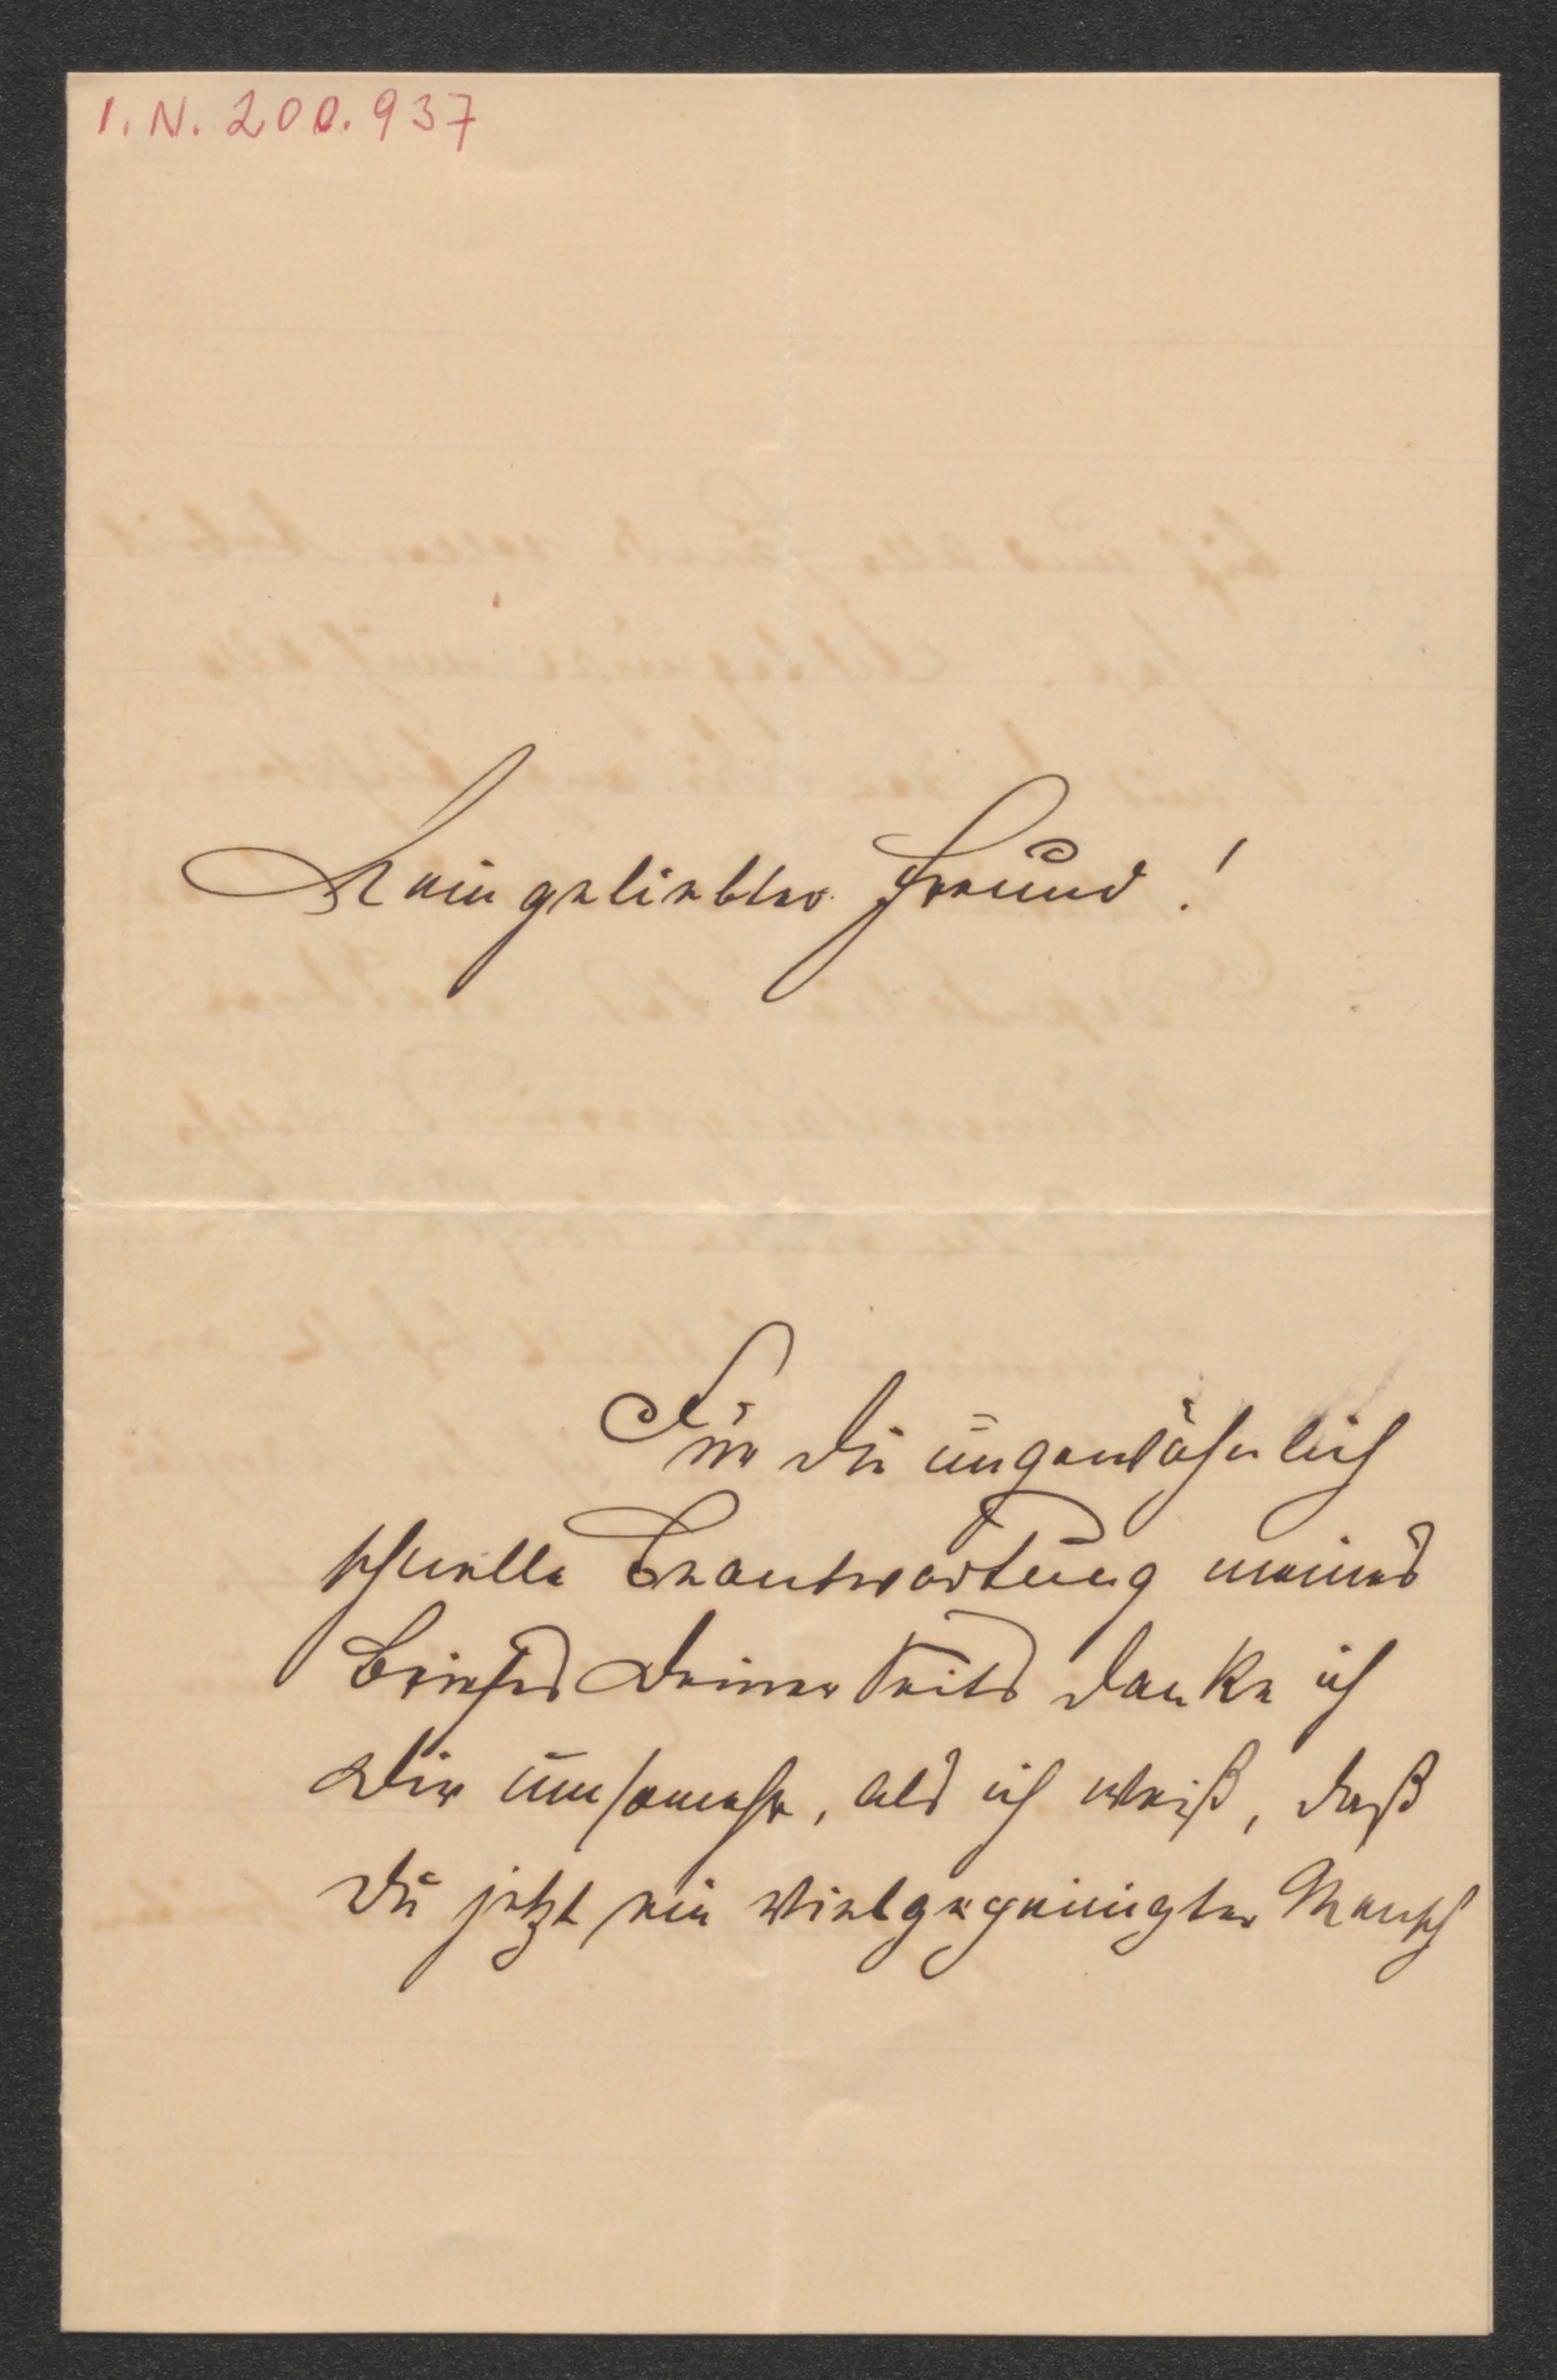 I. N. 200.937
Mein geliebter Freund!
Für die ungewöhnlich
schnelle Beantwortung meines
Briefes Deinerseits danke ich
Dir umsomehr, als ich weiß, daß
Du jetzt ein vielgepeinigter Mensch